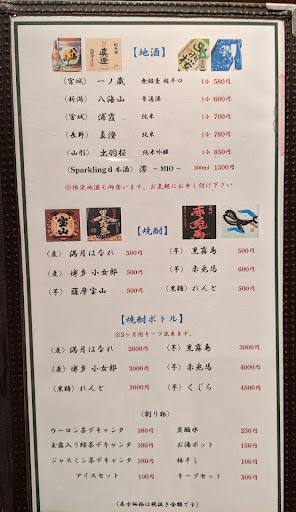 【地酒】
(宮城) 一ノ蔵 無鑑査 超辛口 1合 580円
(新潟) 八海山 普通酒 1合 600円
(宮城) 浦霞 純米 1合 700円
(長野) 真澄 純米 1合 780円
(山形) 出羽桜 純米吟醸 1合 850円
(Sparkling日本酒) 澪 ～MIO～ 300ml 1300円
※限定地酒も御座います。お気軽にお申し付け下さい
【焼酎】
(麦) 満月はなれ 500円 (芋) 黒霧島 500円
(麦) 博多 小女郎 500円 (芋) 赤兎馬 600円
(芋) 薩摩宝山 500円 (黒糖) れんと 500円
【焼酎ボトル】
※3ヶ月間キープ出来ます。
(麦) 満月はなれ 2600円 (芋) 黒霧島 3000円
(麦) 博多 小女郎 3000円 (芋) 赤兎馬 4000円
(黒糖) れんと 3000円 (芋) くじら 4500円
(割り物)
ウーロン茶デキャンタ 380円 炭酸水 250円
玉露入り緑茶デキャンタ 380円 お湯ポット 150円
ジャスミン茶デキャンタ 380円 梅干し 100円
アイスセット 100円 キープセット 300円
(表示価格は税抜き金額です)